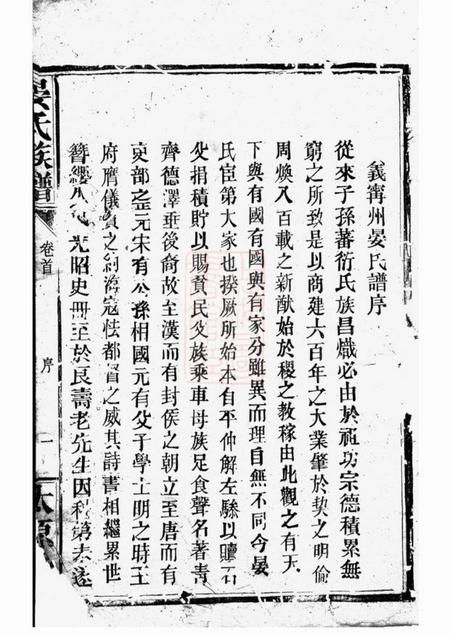 義寧州晏氏譜序
從來子孫蕃衍氏族昌熾必由於祖功宗德積累無
窮之所致是以商建六百年之大業肇於契之明倫
周煥八百載之新猷始於稷之教稼由此觀之有天
下與有國有國與有家分雖異而理自無不同今晏
氏宦第大家也揆厥所始本自平仲解左驂以贖
父捐積貯以賜貧民父族乘車母族足食聲名著青
齊德澤垂後裔故至漢而有封侯之朝立至唐而有
吏部之 元宋有公孫相國元有父子學士明之時王
府膺儀賓之 海寇怯都督之威其詩書相繼累世
簪纓 光昭史冊至於良壽老先生因 第未遂
晏氏族譜
卷首
序
一
太原